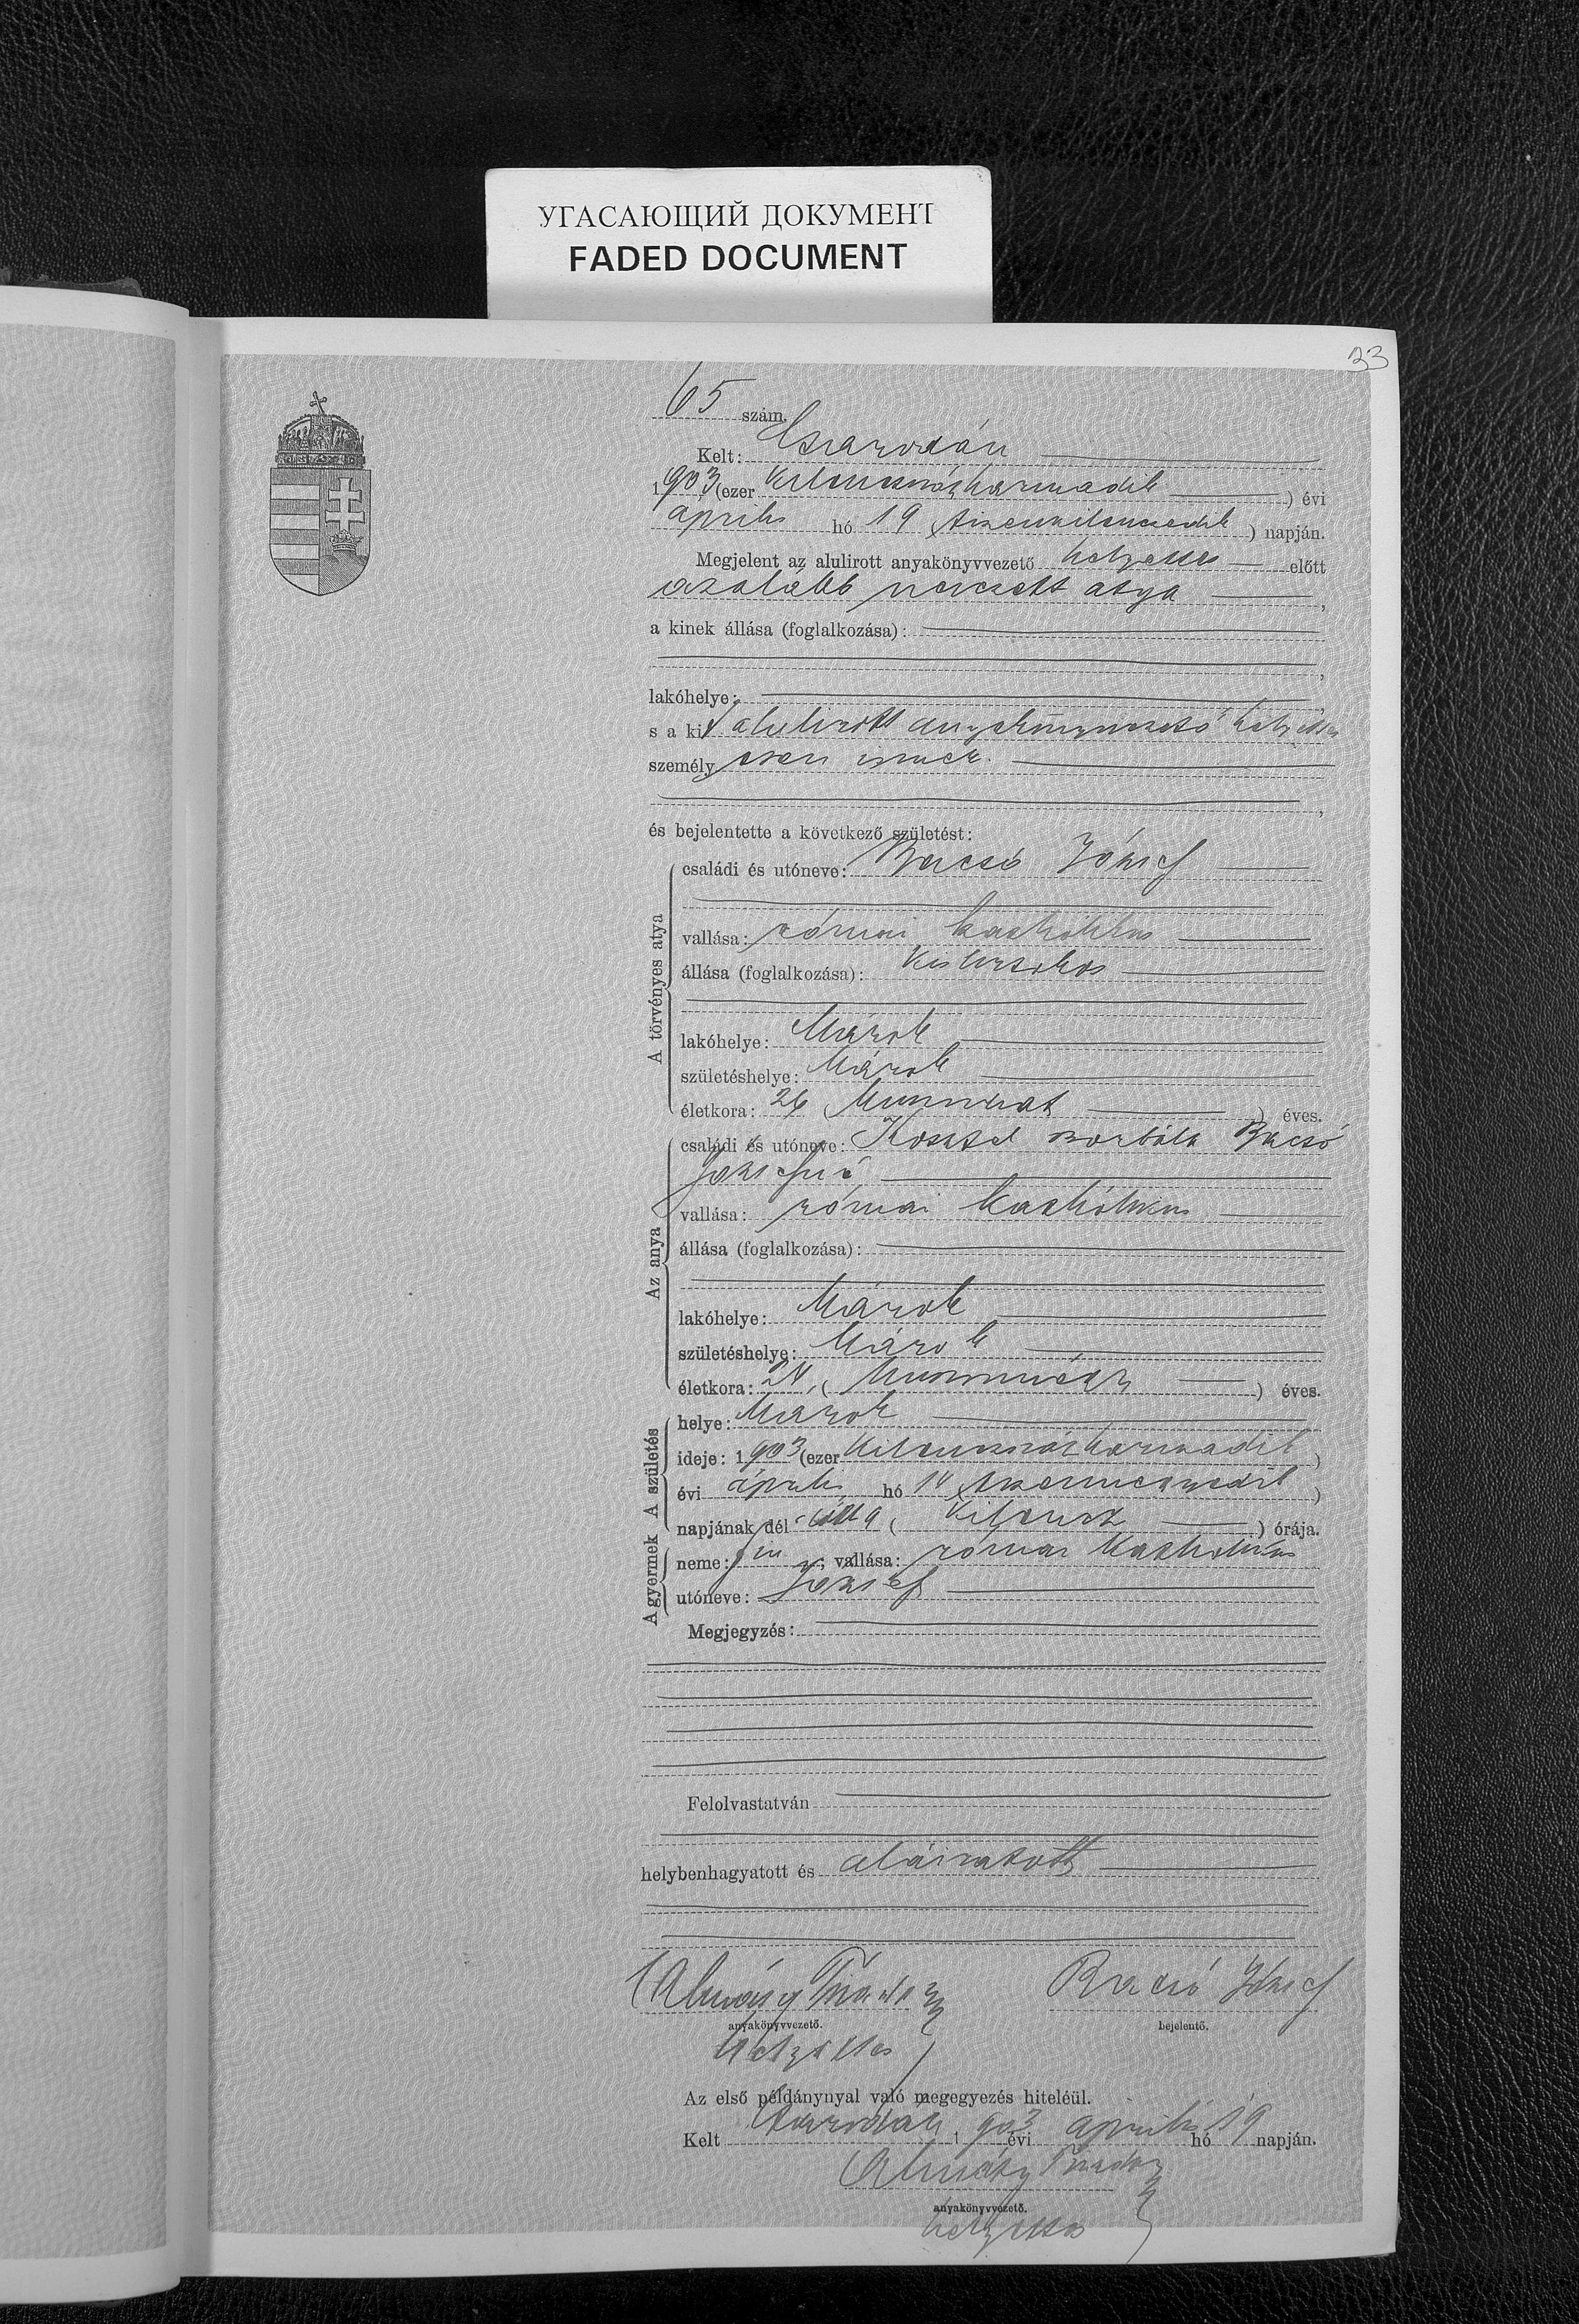 УГАСАЮЩИЙ ДОКУМЕНТ
FADED DOCUMENT
33
65 szám.
Kelt: Csarodán
1903 (ezer kilencszázharmadik ) évi
április hó 19 tizenkilencedik ) napján.
Megjelent az alulirott anyakönyvvezető helyettes előtt
az alább nevezett atya ,
a kinek állása (foglalkozása):
,
lakóhelye: ,
s a kit alulirott anyakönyvvezető helyettes
személyesen ismer.
,
és bejelentette a következő születést:
A törvényes atya
családi és utóneve: Bacsó József
vallása: római katholikus
állása (foglalkozása): kisbirtokos
lakóhelye: Márok
születéshelye: Márok
életkora: 26 ( huszonhat ) éves.
Az anya
családi és utóneve: Borbála Bacsó
Józsefné
vallása: római katholikus
állása (foglalkozása):
lakóhelye: Márok
születéshelye: Márok
életkora: 24 ( huszonnégy ) éves.
A születés
helye: Márok
ideje: 1903 (ezer kilencszázharmadik )
évi április hó 14 tizennegyedik )
napjának dél 9 ( kilencz ) órája.
A gyermek
neme: fiu ; vallása: római katholikus
utóneve: József
Megjegyzés:
Felolvastatván
helybenhagyatott és aláiratott
Bacsó József
anyakönyvvezető. bejelentő.
helyettes
Az első példánynyal való megegyezés hiteléül.
Kelt Csarodán 1903 évi április hó 19 napján.
anyakönyvvezető.
helyettes